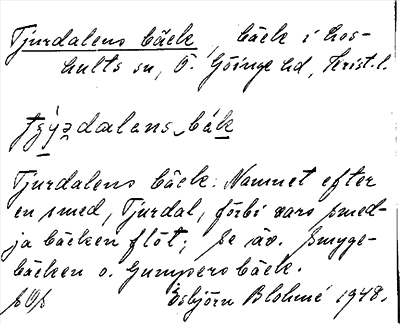 Tjurdalens bäck, bäck i Los-
hults sn, Ö. Göinge hd, Krist. l.
Tjurdalens bäck. Namnet efter
en smed, Tjurdal, förbi vars smed-
ja bäcken flöt; se äv. Smyge-
bäcken o. Gumpers bäck.
SOS Esbjörn Blohmé 1948.